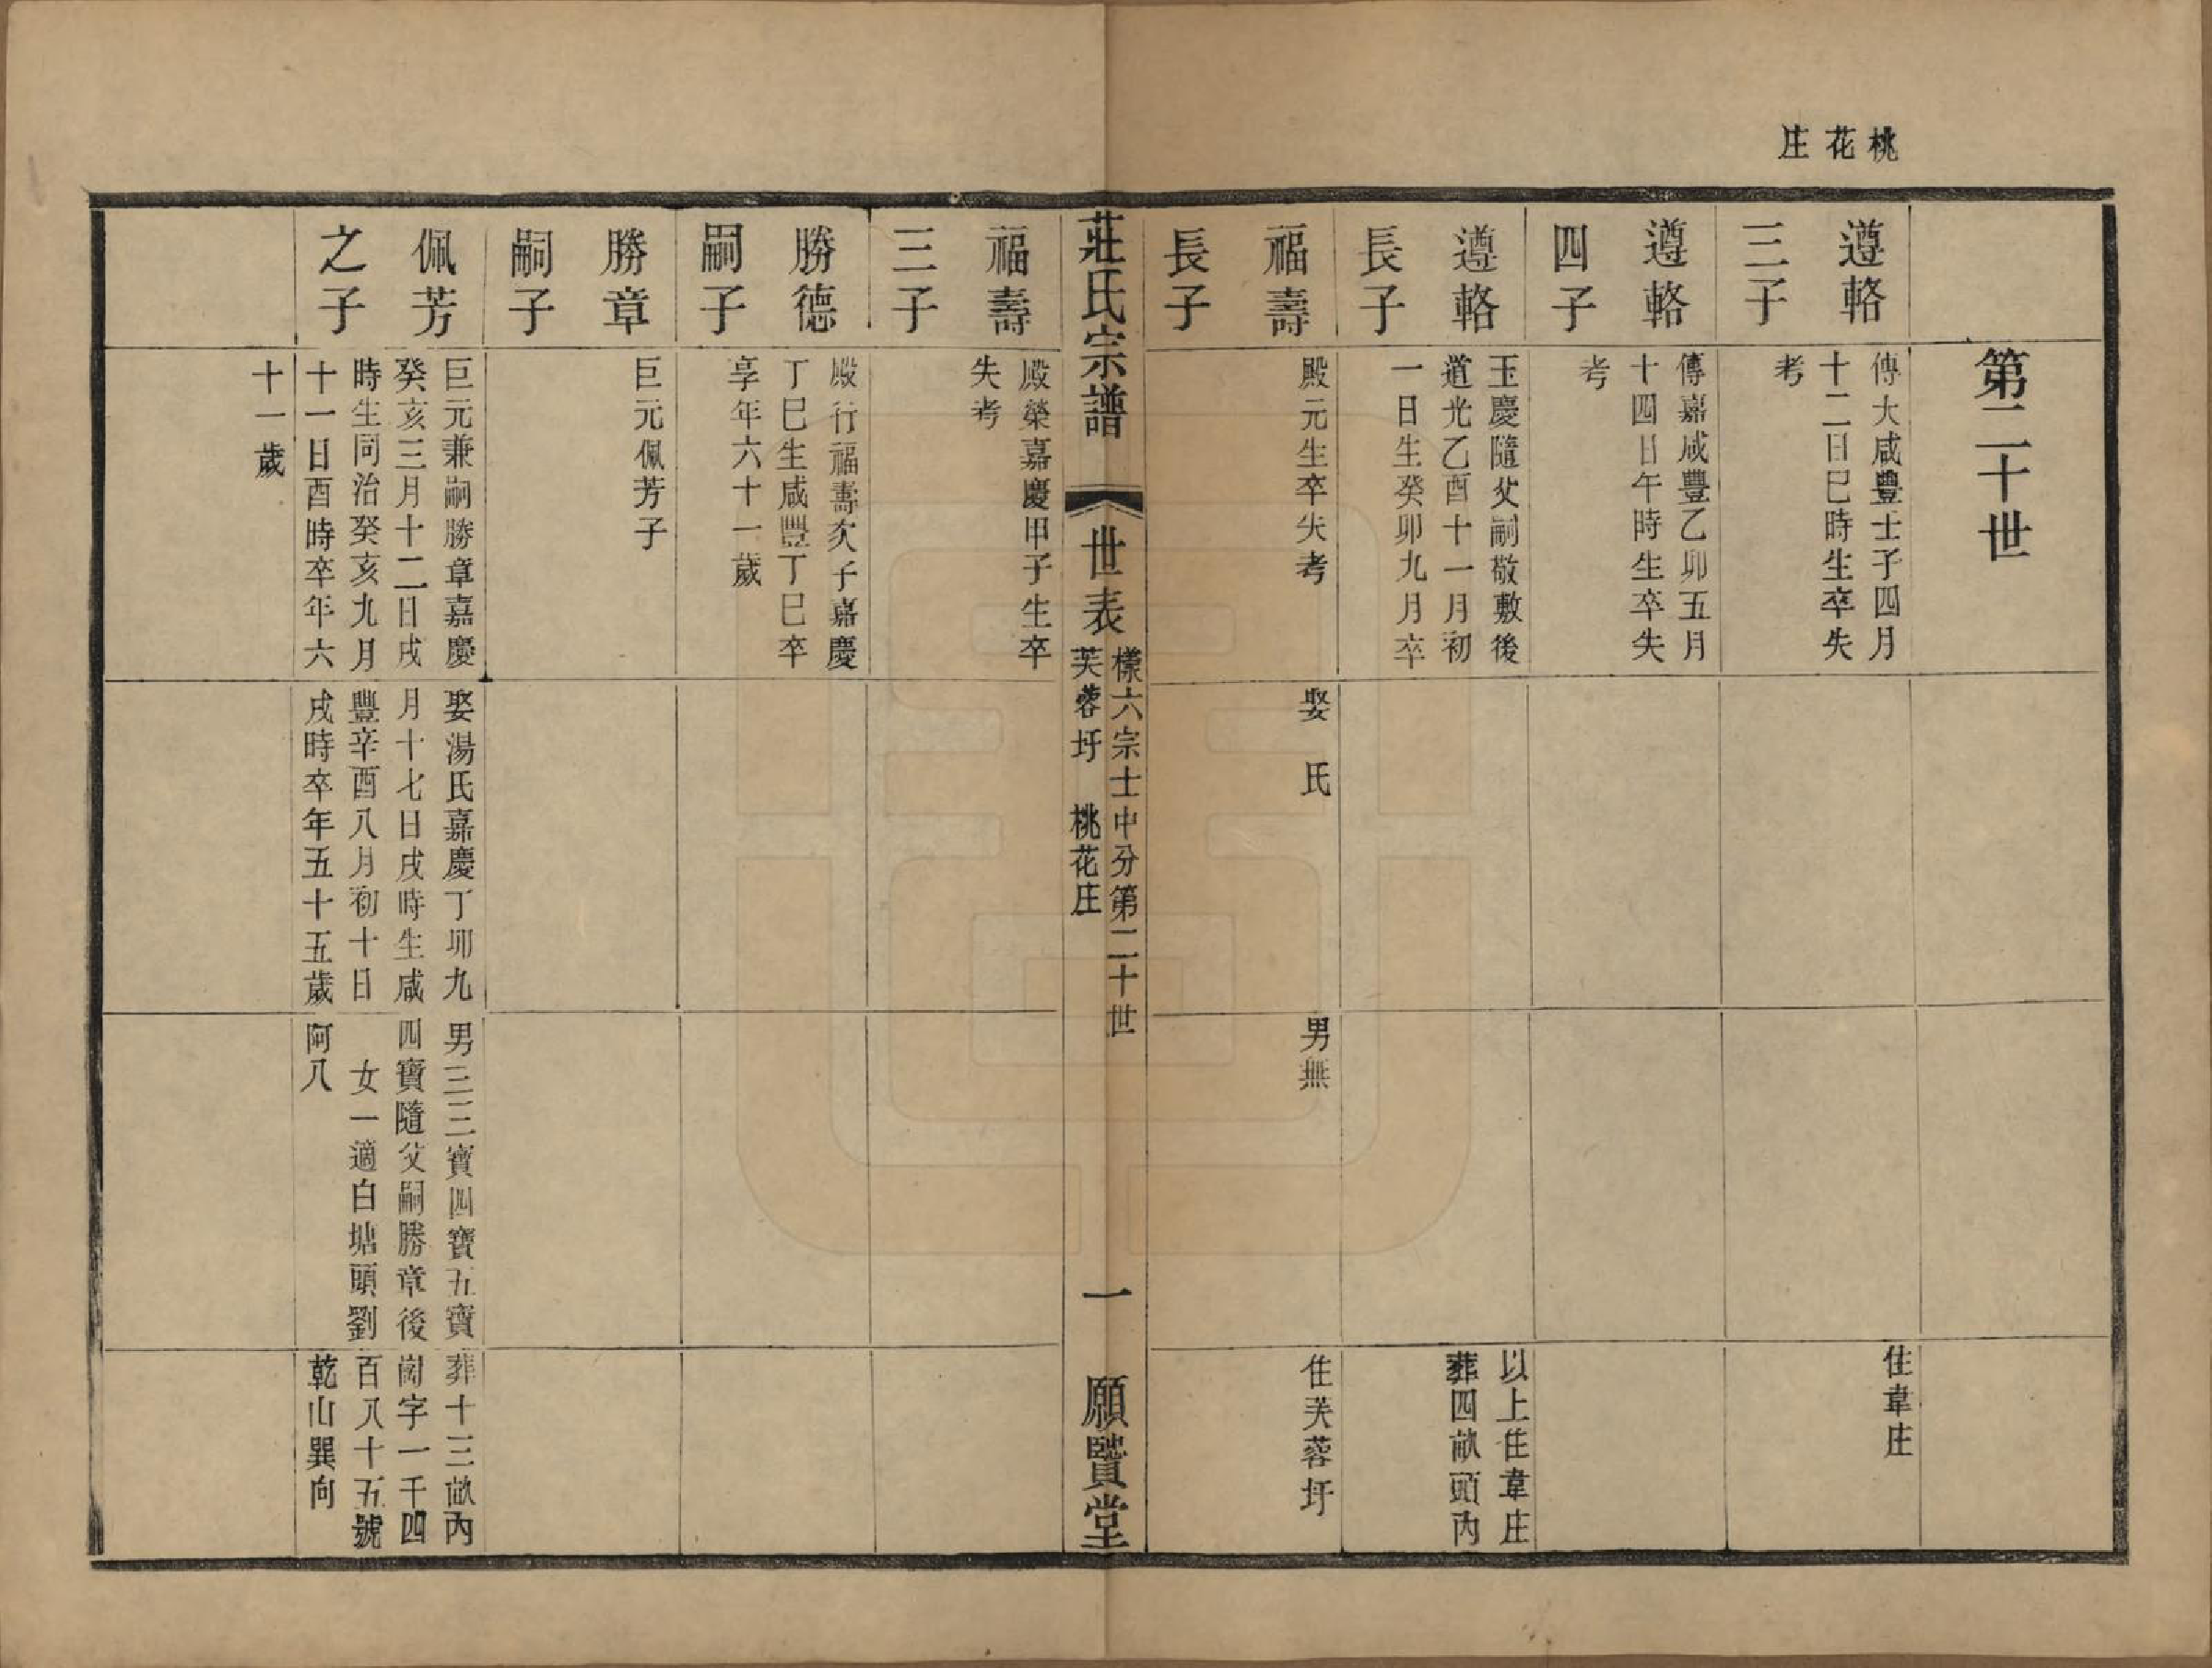 桃花庄
第二十世
遵輅
三子
傳大咸豐壬子四月
十二日巳時生卒失
考
住韋庄
遵輅
四子
傳嘉咸豐乙卯五月
十四日午時生卒失
考
遵輅
長子
玉慶隨父嗣敬敷後
道光乙酉十一月初
一日生癸卯九月卒
以上住韋庄
葬四畝頭內
福壽
長子
殿元生卒失考
娶　氏
男無
住芙蓉圩
莊氏宗譜
世表
樣六宗士中分第二十世
芙蓉圩　桃花庄
一
願賢堂
福壽
三子
殿榮嘉慶甲子生卒
失考
勝德
嗣子
殿行福壽次子嘉慶
丁巳生咸豐丁巳卒
享年六十一歲
勝章
嗣子
巨元佩芳子
佩芳
之子
巨元兼嗣勝章嘉慶
癸亥三月十二日戌
時生同治癸亥九月
十一日酉時卒年六
十一歲
娶湯氏嘉慶丁卯九
月十七日戌時生咸
豐辛酉八月初十日
戌時卒年五十五歲
男三三寶四寶五寶
四寶隨父嗣勝章後
女一適白塘頭劉
阿八
葬十三畝內
崗字一千四
百八十五號
乾山巽向